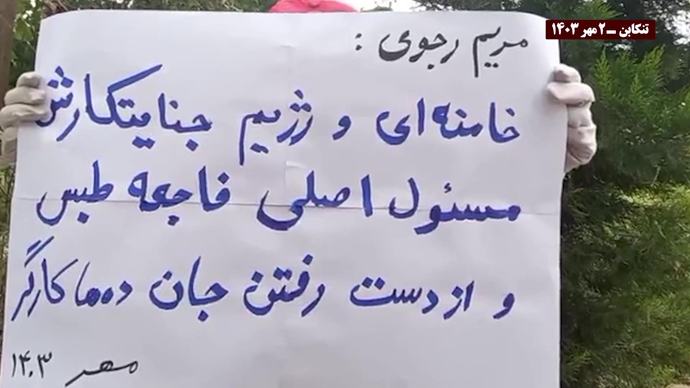 تنکابن – ۲ مهر ۱۴۰۳
مریم رجوی :
خامنه‌ای و رژیم جنایتکارش
مسئول اصلی فاجعه طبس
و از دست رفتن جان ده‌ها کارگر
مهر ۱۴۰۳